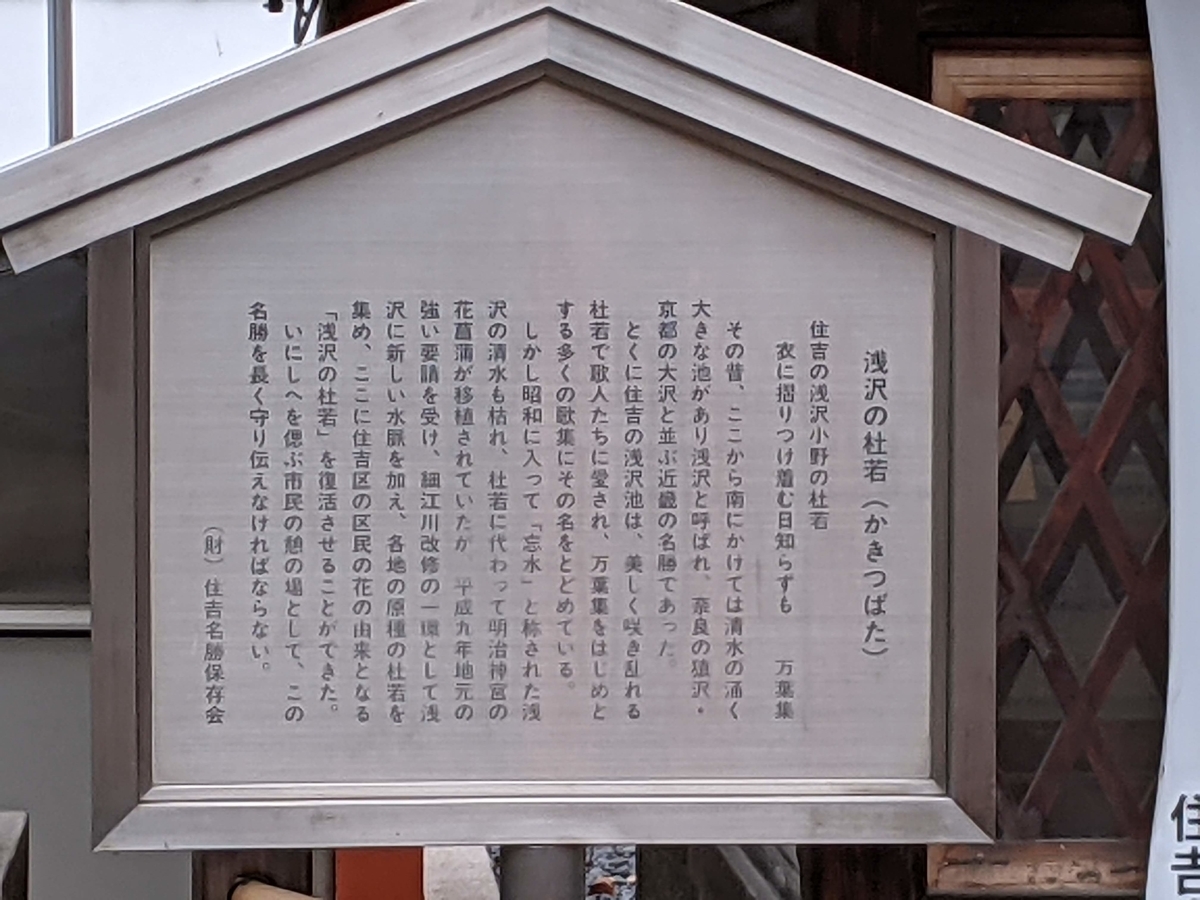 浅沢の杜若（かきつばた）
住吉の浅沢小野の杜若
衣に摺りつけ着む日知らずも　万葉集
その昔、ここから南にかけては清水の涌く
大きな池があり浅沢と呼ばれ、奈良の猿沢・
京都の大沢と並ぶ近畿の名勝であった。
とくに住吉の浅沢池は、美しく咲き乱れる
杜若で歌人たちに愛され、万葉集をはじめと
する多くの歌集にその名をとどめている。
しかし昭和に入って「忘水」と称された浅
沢の清水も枯れ、杜若に代わって明治神宮の
花菖蒲が移植されていたが、平成九年地元の
強い要請を受け、細江川改修の一環として浅
沢に新しい水脈を加え、各地の原種の杜若を
集め、ここに住吉区の区民の花の由来となる
「浅沢の杜若」を復活させることができた。
いにしへを偲ぶ市民の憩の場として、この
名勝を長く守り伝えなければならない。
（財）住吉名勝保存会
住吉